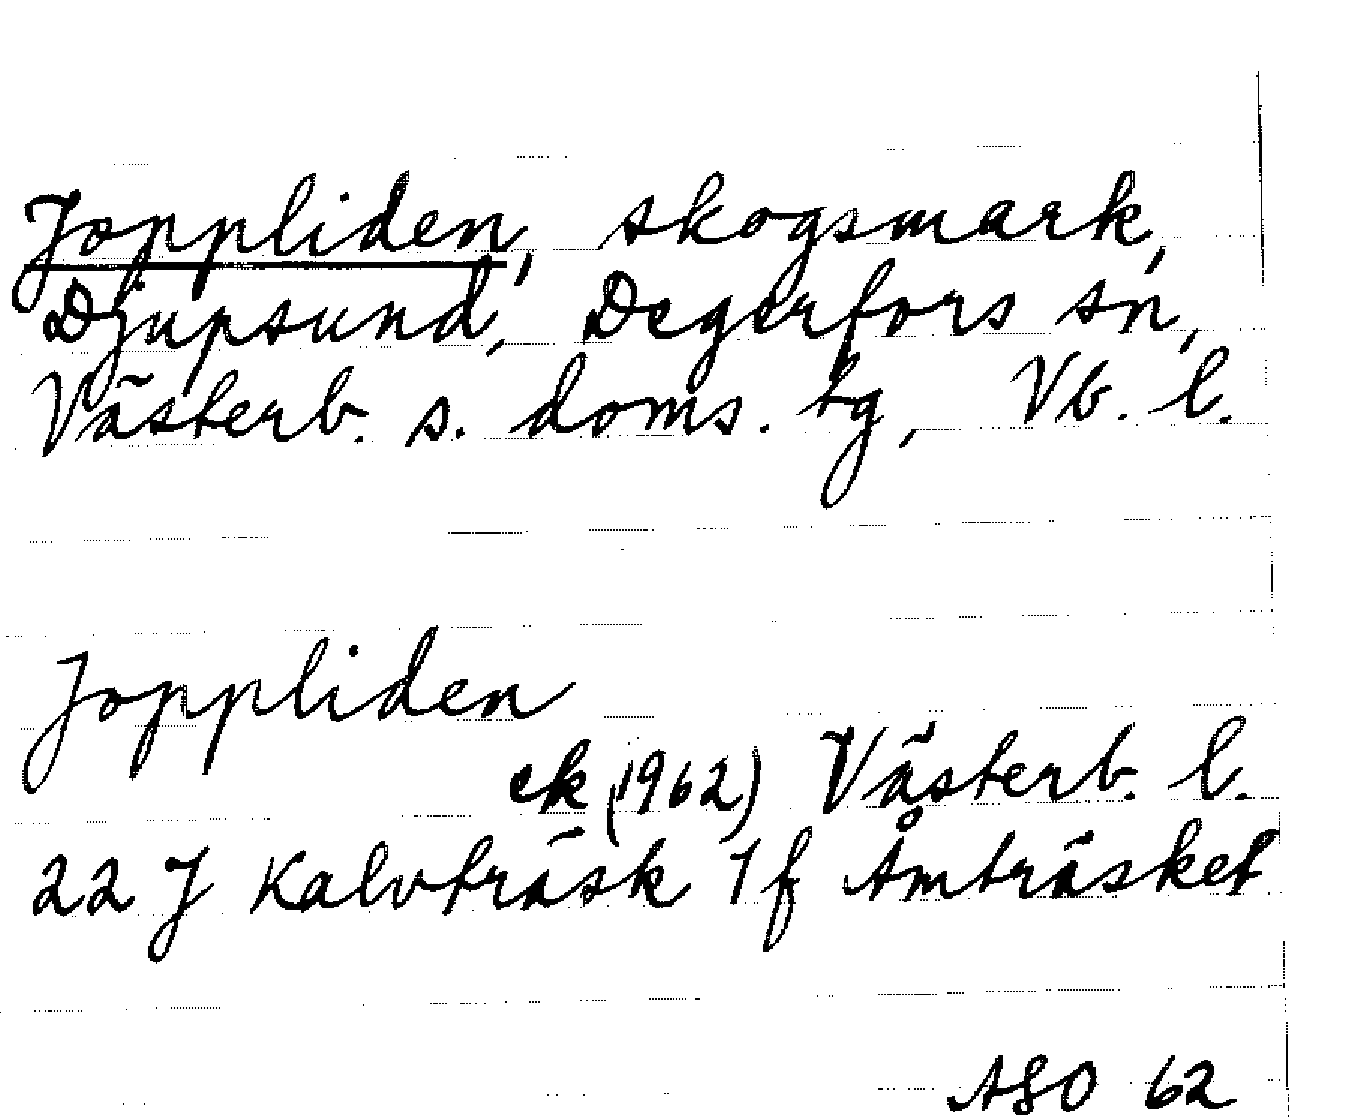 Joppliden, skogsmark,
Djupsund, Degerfors sn,
Västerb. s. doms. tg, Vb. l.
Joppliden
ek (1962) Västerb. l.
22 J Kalvträsk 7f Åmträsket
ASO 62